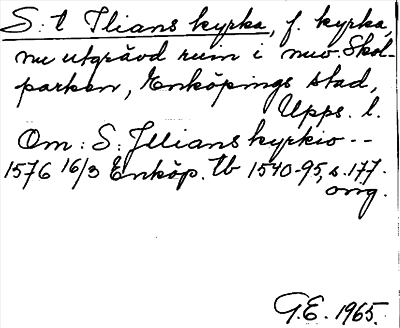 S:t Ilians kyrka, f. kyrka,
nu utgrävd ruin i nuv. Skol-
parken, Enköpings stad,
Upps. l.
Om: S: Illians kyrkio --
1576 16/3 Enköp. Tb 1540-95, s. 177.
orig.
G.E. 1965.